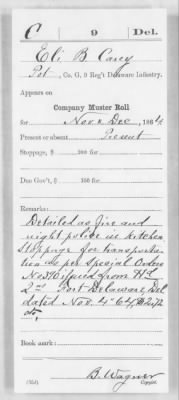 C 9 Del.
Eli B Carey
Pvt, Co. G, 9 Reg't Delaware Infantry.
Appears on
Company Muster Roll
for Nov & Dec, 1864
Present or absent Present
Stoppage, $ 100 for
Due Gov't, $ 100 for
Remarks:
Detailed as fire and
night police in kitchen
Stoppage for transporta-
tion as per Special Orders
No 376 issued from Hd
2rs Fort Delaware, Del
dated Nov. 4" 64, $2,72
cts,
Book mark:
B. Wagner
(358) Copyist.